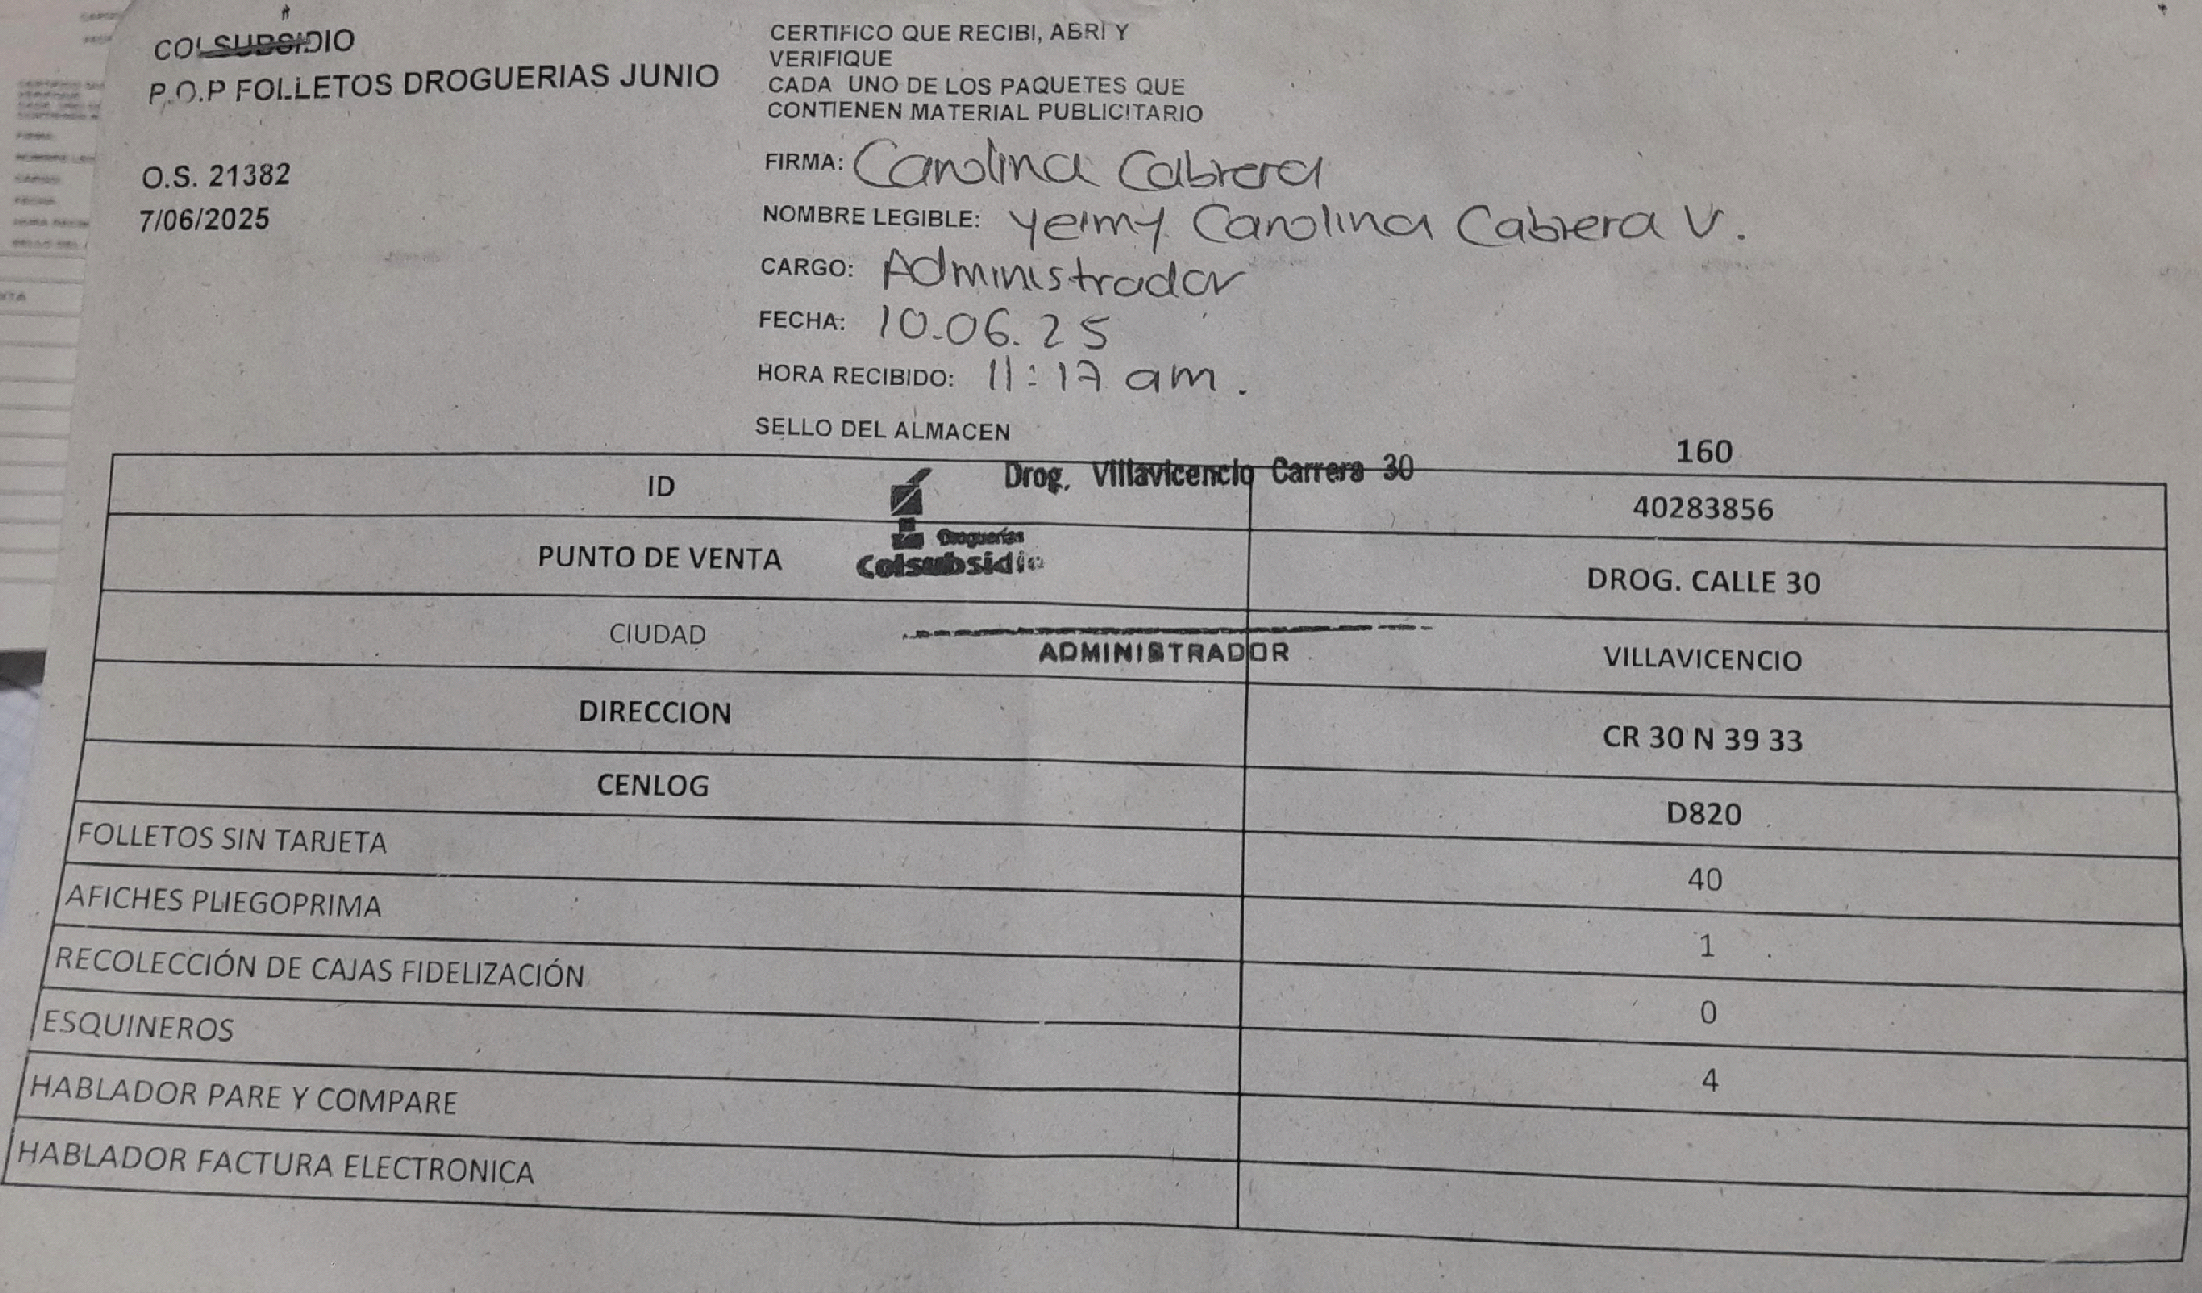 COLSUBSIDIO
P.O.P FOLLETOS DROGUERIAS JUNIO
O.S. 21382
7/06/2025
CERTIFICO QUE RECIBI, ABRI Y
VERIFIQUE
CADA UNO DE LOS PAQUETES QUE
CONTIENEN MATERIAL PUBLICITARIO
FIRMA: Carolina Cabrera
NOMBRE LEGIBLE: Yeimy Carolina Cabrera V.
CARGO: Administrador
FECHA: 10.06.25
HORA RECIBIDO: 11:17 am.
SELLO DEL ALMACEN
160
Drog. Villavicencio Carrera 30
Droguerías
Colsubsidio
ADMINISTRADOR
ID 40283856
PUNTO DE VENTA DROG. CALLE 30
CIUDAD VILLAVICENCIO
DIRECCION CR 30 N 39 33
CENLOG D820
FOLLETOS SIN TARJETA 40
AFICHES PLIEGOPRIMA 1
RECOLECCIÓN DE CAJAS FIDELIZACIÓN 0
ESQUINEROS 4
HABLADOR PARE Y COMPARE
HABLADOR FACTURA ELECTRONICA